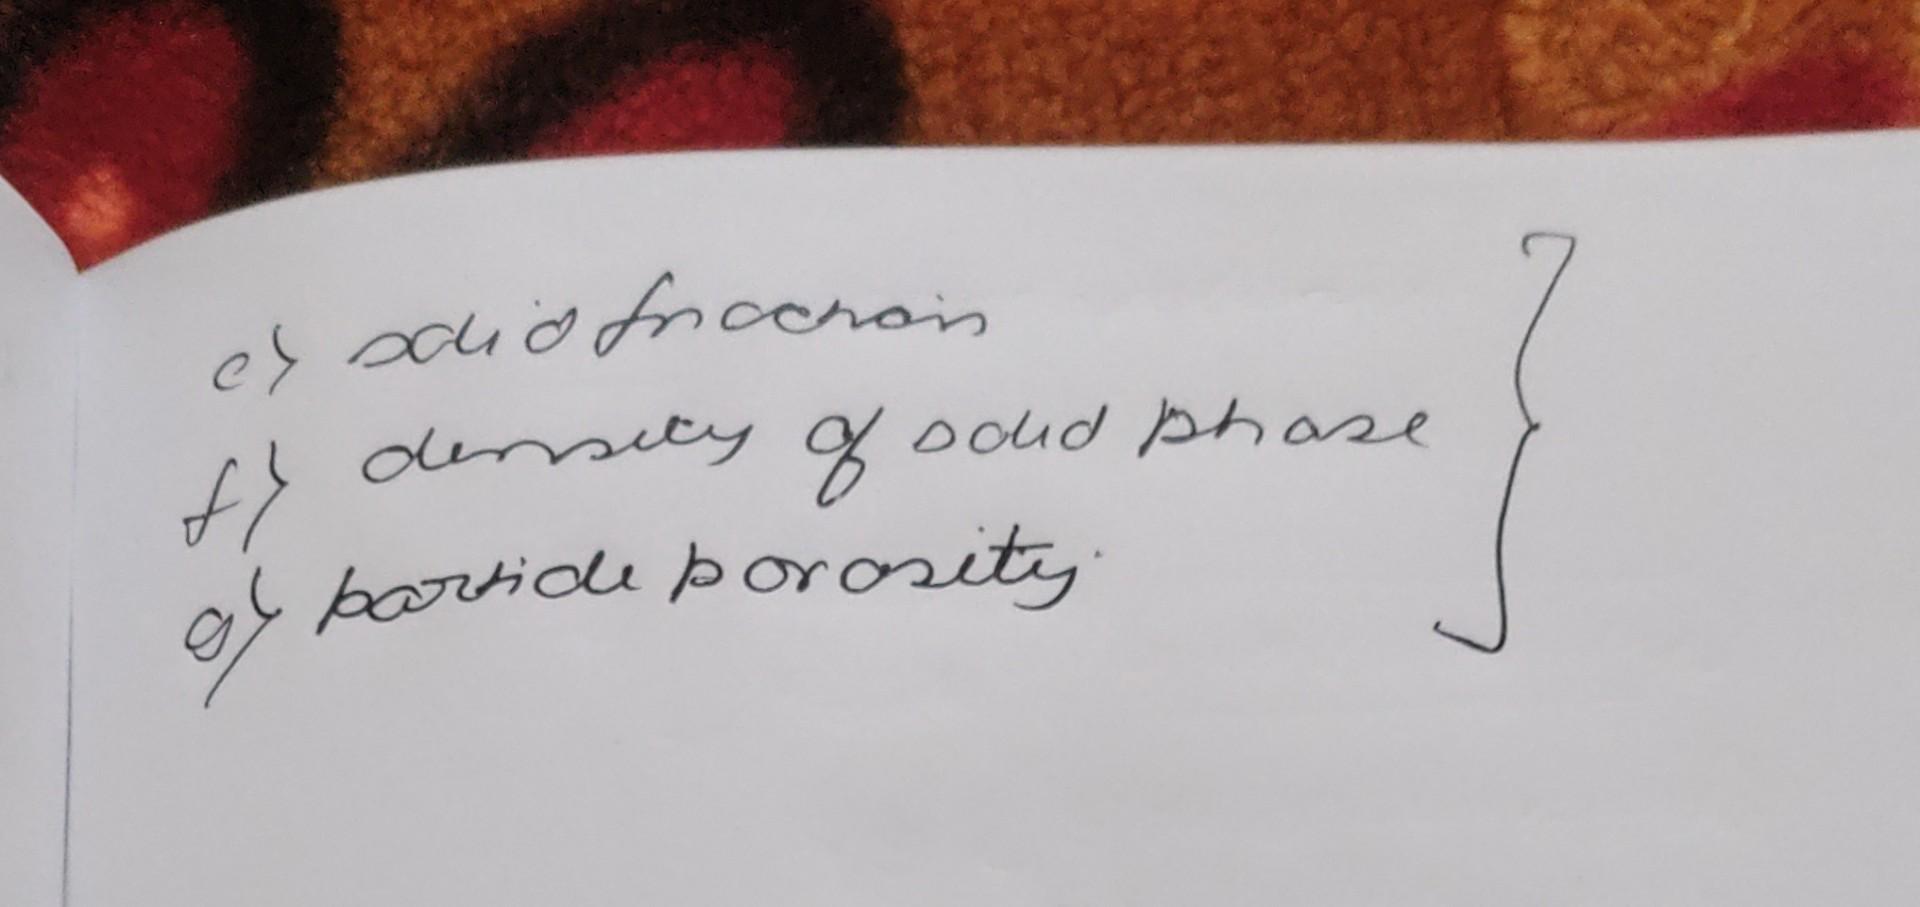 e) solid fraction
f) density of solid phase
g) particle porosity.